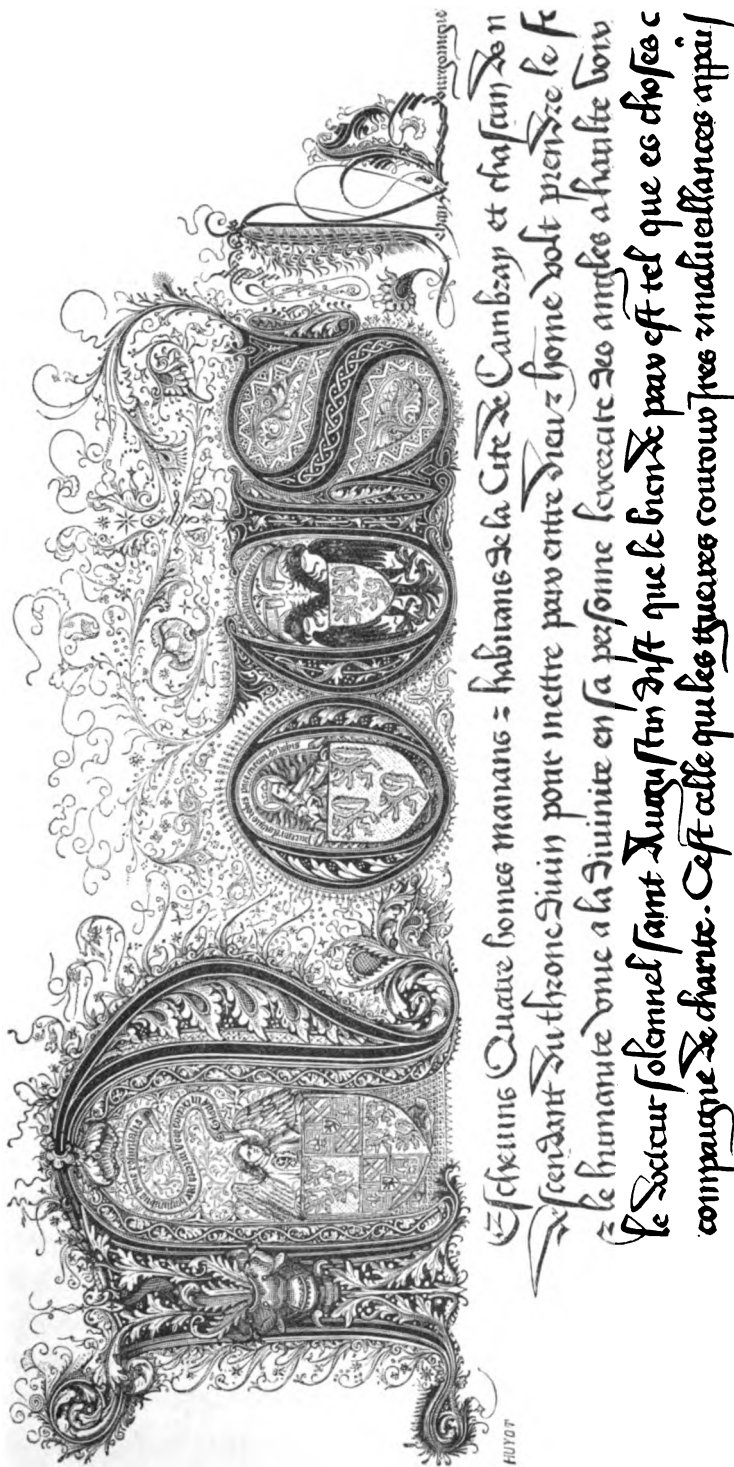 NOUS
Eschevins Quatre homes manans ⁊ habitans de la Cite de Cambray et chascun de n
descendant du throne diuin pour mettre paix entre dieu ⁊ home volt prendre le se
⁊ le humanite vnie a la diuinite en sa personne
des angles a haulte voix
le docteur solemnel saint Augustin dist que le bien de paix est tel que es choses c
compaignie de charite. Cest celle qui les guerres couroux ires ⁊ malueillances appais
HUYOT